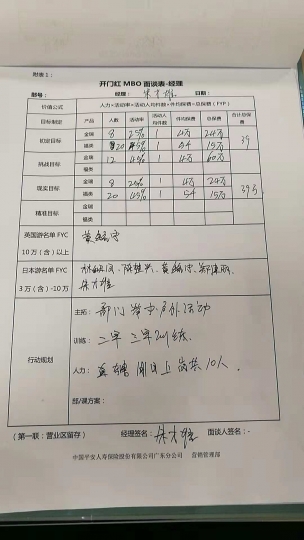 附表1：
开门红 MBO 面谈表-经理
部号： 经理：朱才雄 日期：
价值公式 人力×活动率×活动人均件数×件均保费=总保费（FYP）
目标制定 产品 人数 活动率 人均件数 件均保费 总保费 合计总保费
初定目标 金瑞 8 25% 1 4万 24万 39
福类 20 45% 1 54 15万
挑战目标 金瑞 12 45% 1 4万 60万
福类
现实目标 金瑞 8 25% 4万 24万 39万
福类 20 45% 1 54 15万
精准目标 金瑞
福类
英国游名单 FYC
10 万（含）以上
日本游名单 FYC
3 万（含）-10万
朱才雄
行动规划
主拓：部门举办户外活动
训练：二早 三早训练.
人力：上岗 10人.
部/课方案：
（第一联：营业区留存） 经理签名：朱才雄 面谈人签名：
中国平安人寿保险股份有限公司广东分公司 营销管理部